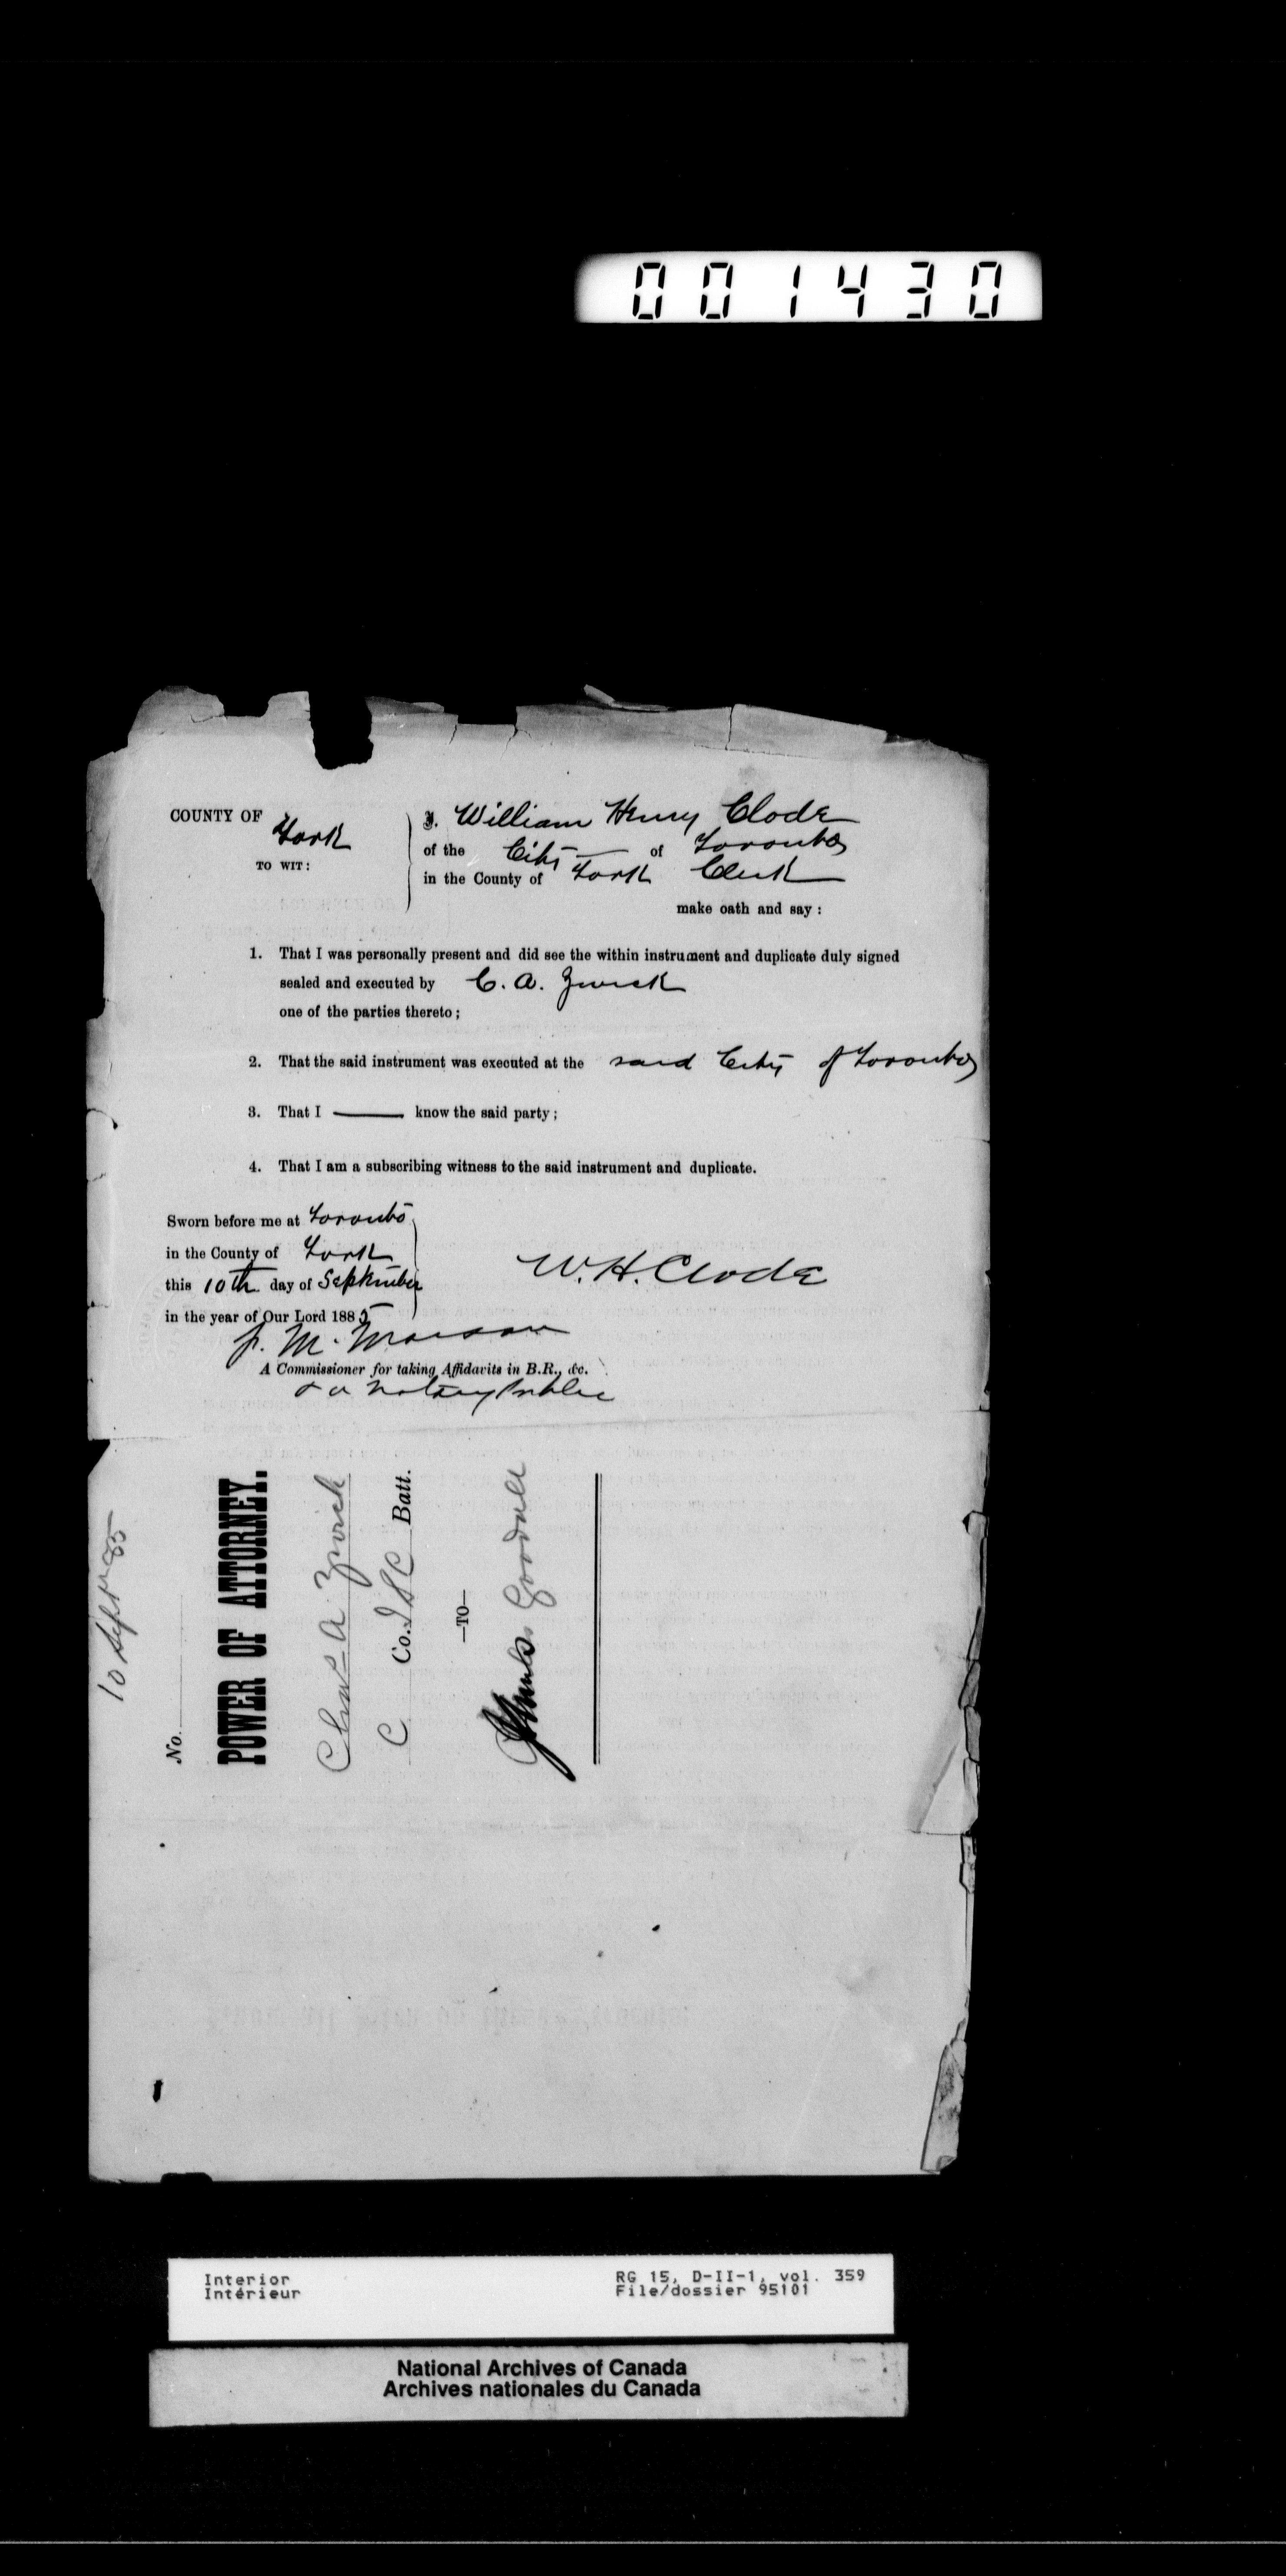 001430
COUNTY OF York
TO WIT:
I. William Henry Clode
of the City of Toronto
in the County of York Clerk
make oath and say:
1. That I was personally present and did see the within instrument and duplicate duly signed
sealed and executed by C. A. Zwick
one of the parties thereto;
2. That the said instrument was executed at the said City of Toronto
3. That I ——— know the said party;
4. That I am a subscribing witness to the said instrument and duplicate.
Sworn before me at Toronto
in the County of York
this 10th day of September
in the year of Our Lord 1885
W. H. Clode
J. M. Morson
A Commissioner for taking Affidavits in B.R., &c.
& a Notary Public
10 Sept 85
No.
POWER OF ATTORNEY.
Chas A Zwick
C Co. ISC Batt.
—TO—
James Goodall
Interior
Intérieur
RG 15, D-II-1, vol. 359
File/dossier 95101
National Archives of Canada
Archives nationales du Canada